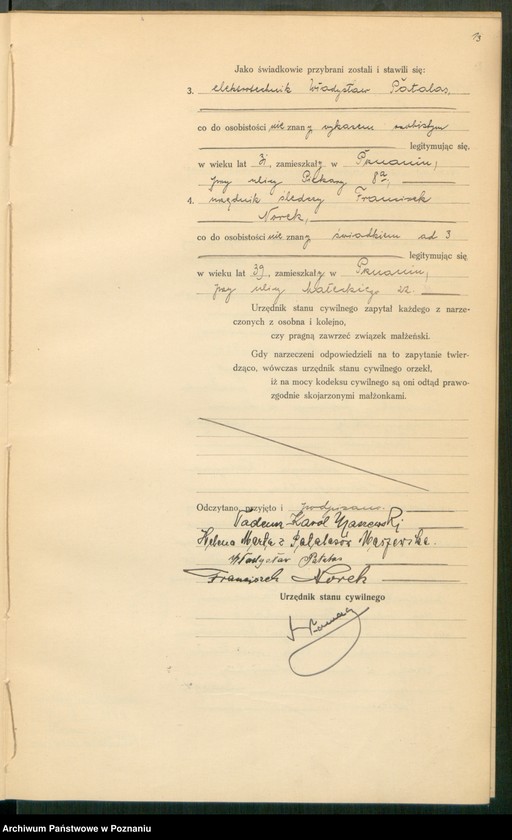 13
Jako świadkowie przybrani zostali i stawili się:
3. elektrotechnik Władysław Pátalas,
co do osobistości nie znany wykazem osobistym
legitymując się,
w wieku lat 31, zamieszkały w Poznaniu,
przy ulicy Piekary 8a,
4. urzędnik śledczy Franciszek
Norek,
co do osobistości nie znany świadkiem ad 3
legitymując się
w wieku lat 39, zamieszkały w Poznaniu,
przy ulicy Małeckiego 22.
Urzędnik stanu cywilnego zapytał każdego z narze-
czonych z osobna i kolejno,
czy pragną zawrzeć związek małżeński.
Gdy narzeczeni odpowiedzieli na to zapytanie twier-
dząco, wówczas urzędnik stanu cywilnego orzekł,
iż na mocy kodeksu cywilnego są oni odtąd prawo-
zgodnie skojarzonymi małżonkami.
Odczytano, przyjęto i podpisano.
Tadeusz Karol
Helena Marta z Patalasów
Władysław Patalas
Franciszek Norek
Urzędnik stanu cywilnego
Archiwum Państwowe w Poznaniu